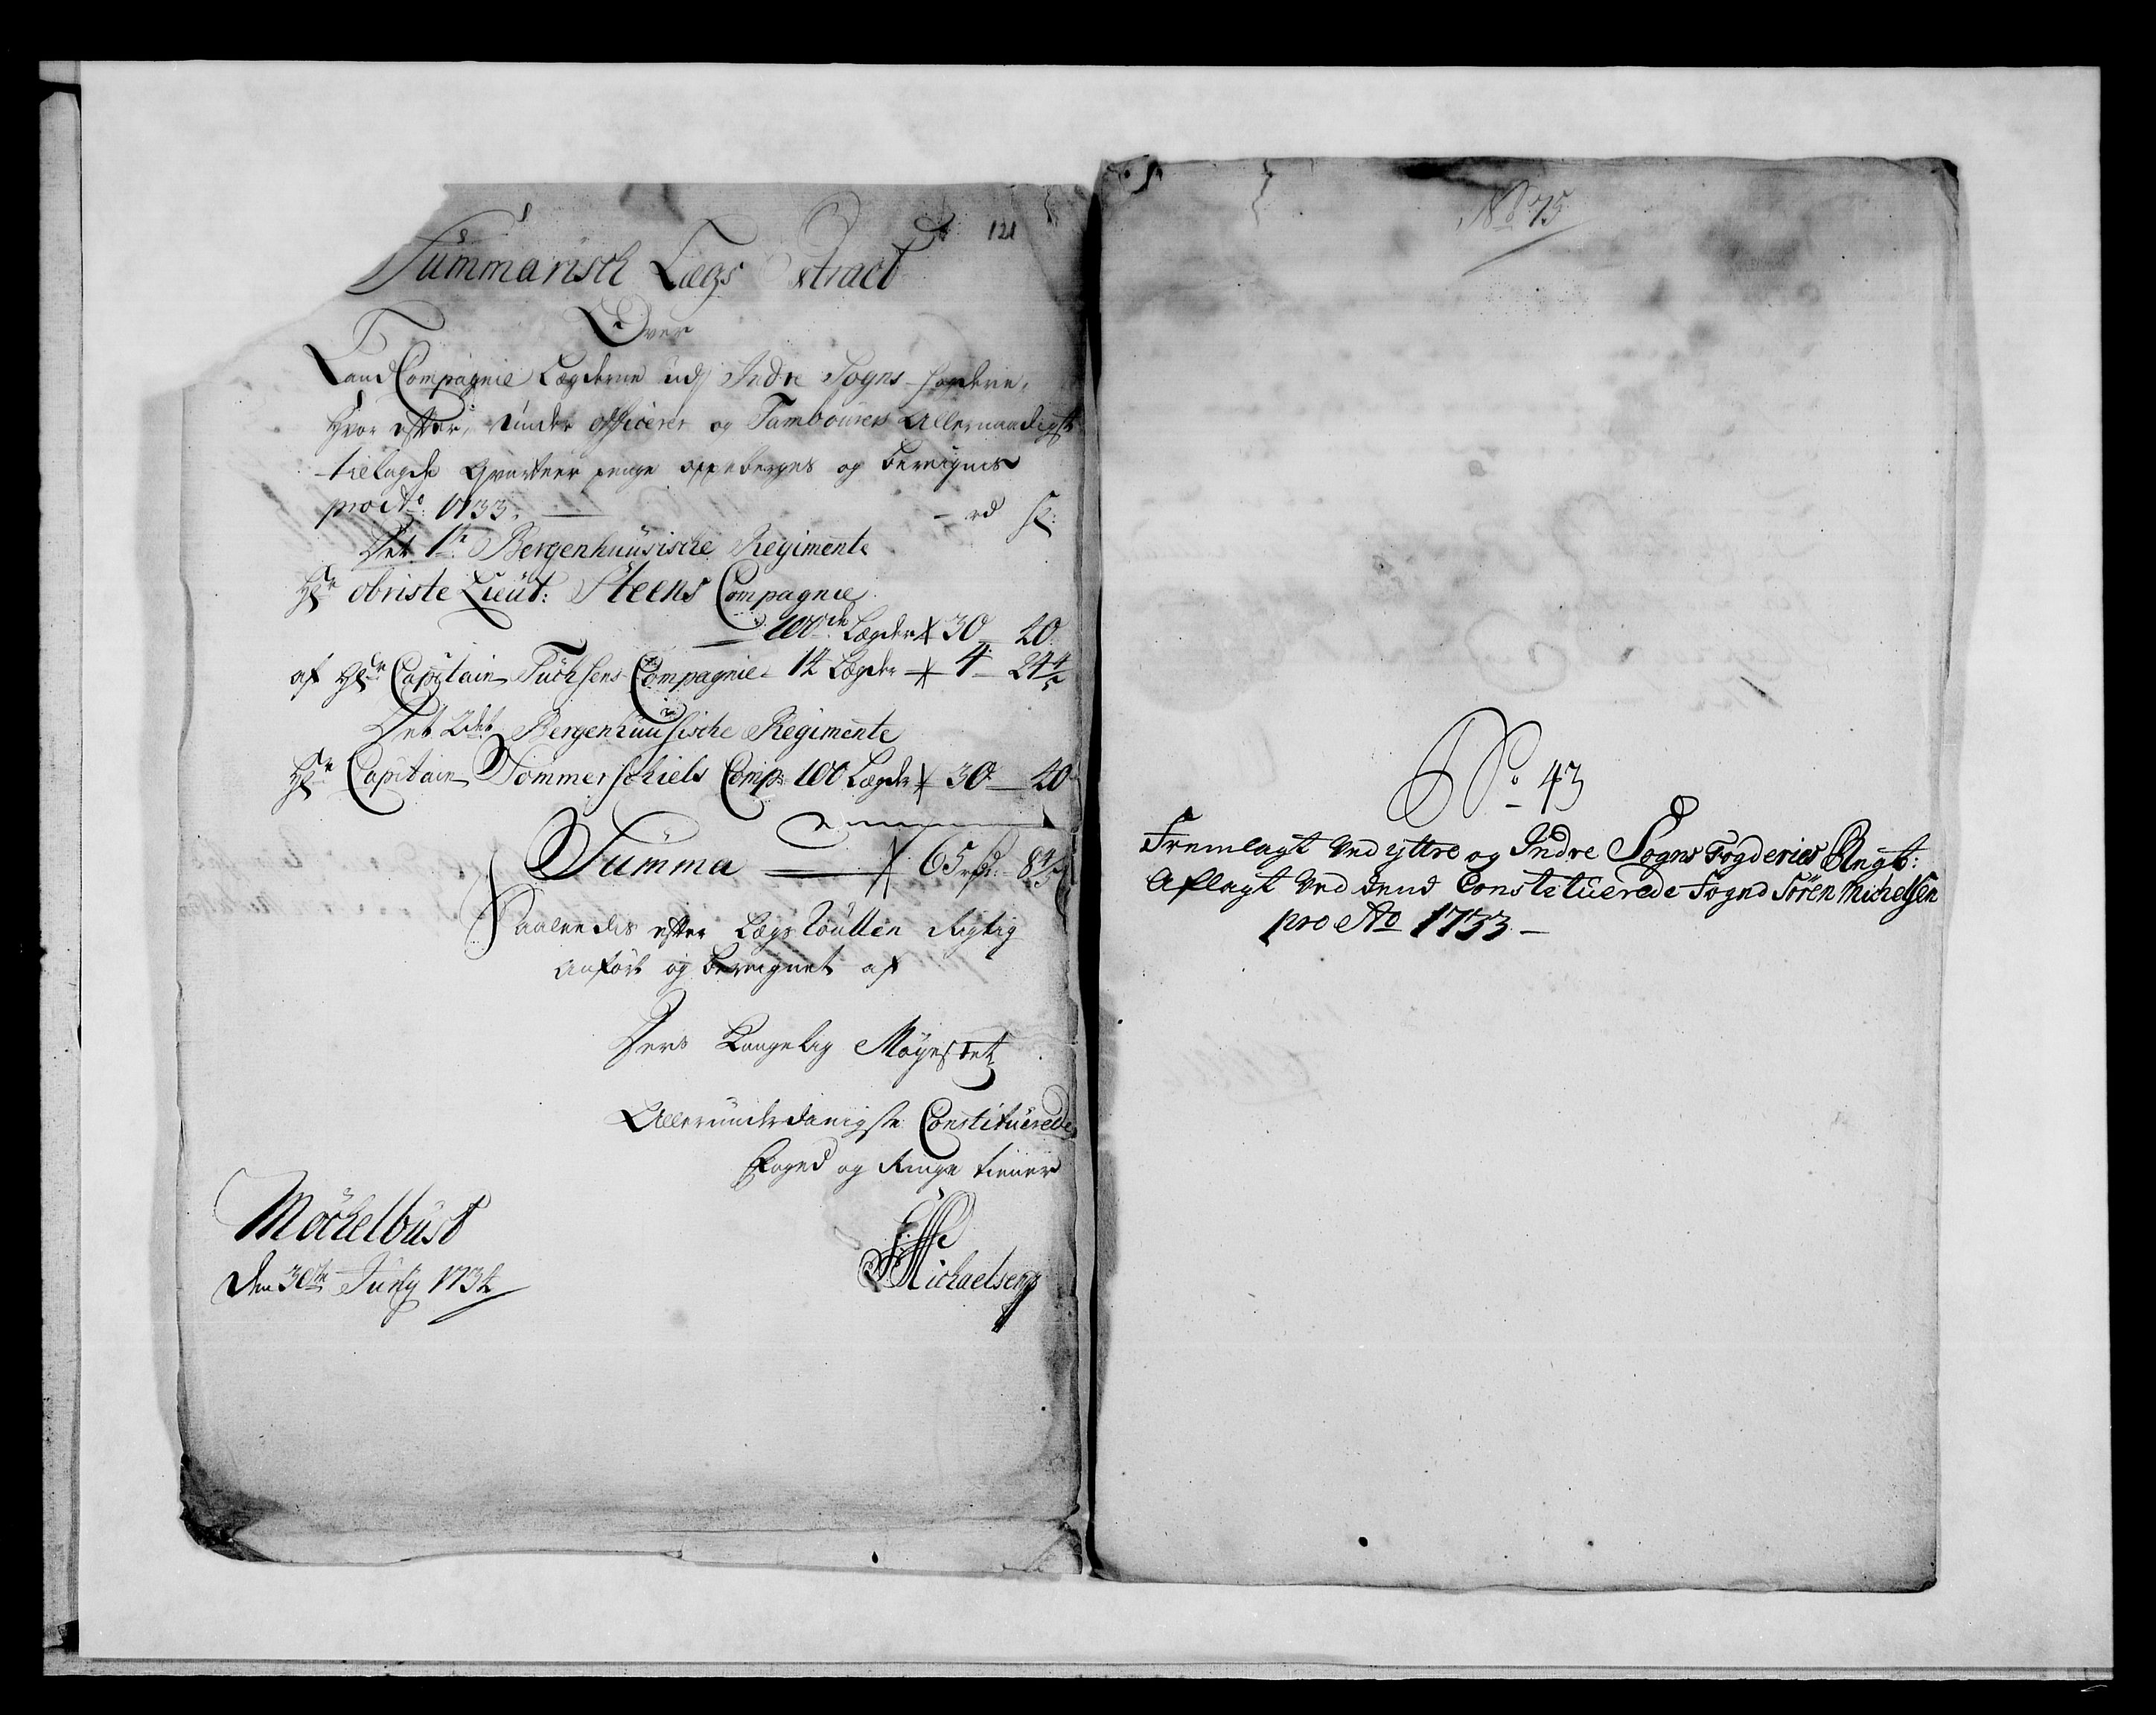 121
Summarisch Lægs Extract
Over
Land Compagnie Lægderne udj Indre Sogns fogderie,
Hvor efter, Under officerer og Tambourers Allernaadigst
tillagde Qvarteer penge oppeberges og bereignes
pro Ao: 1733. — rd ſz:
Det 1te Bergenhuusische Regimente
Hr obriste Lieut: Steens Compagnie
100de Lægder 30 — 20
af Hr Capitain Füchsens Compagnie 14 Lægder 4 — 24 4/5
Det 2det Bergenhuusische Regimente
Hr Capitain Sommerschields Comp: 100 Lægder 30 — 20
Summa — 65 rd: 8 4/5
Saaledes efter Lægs Roullen Rigtig
anført og bereignet af
Ders Kongelig Mayestet
Allerunderdanigste Constituerede
Foged og Ringe tiener
Möchelbust
den 30te Juny 1734
S: Michaelsen
No 75
No 43
Fremlagt Ved yttre og Indre Sogns Fogderies Rngb:
Aflagt Ved dend Constetuerede Foged Sören Michelsen
pro Ao 1733 —